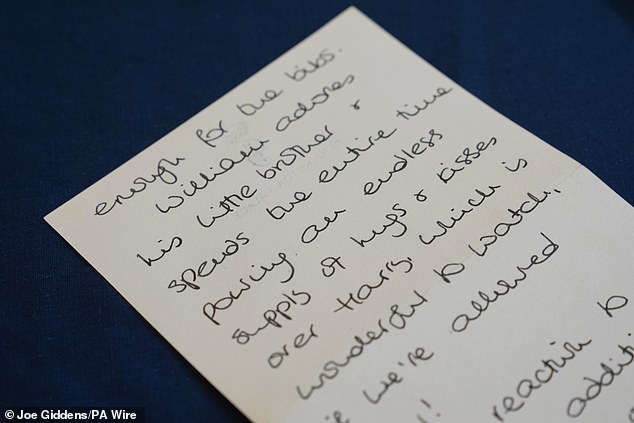 enough for the bibs.
William adores
his little brother &
spends the entire time
pouring an endless
supply of hugs & kisses
over Harry, which is
wonderful to watch,
we're allowed
reaction to
additi
© Joe Giddens/PA Wire